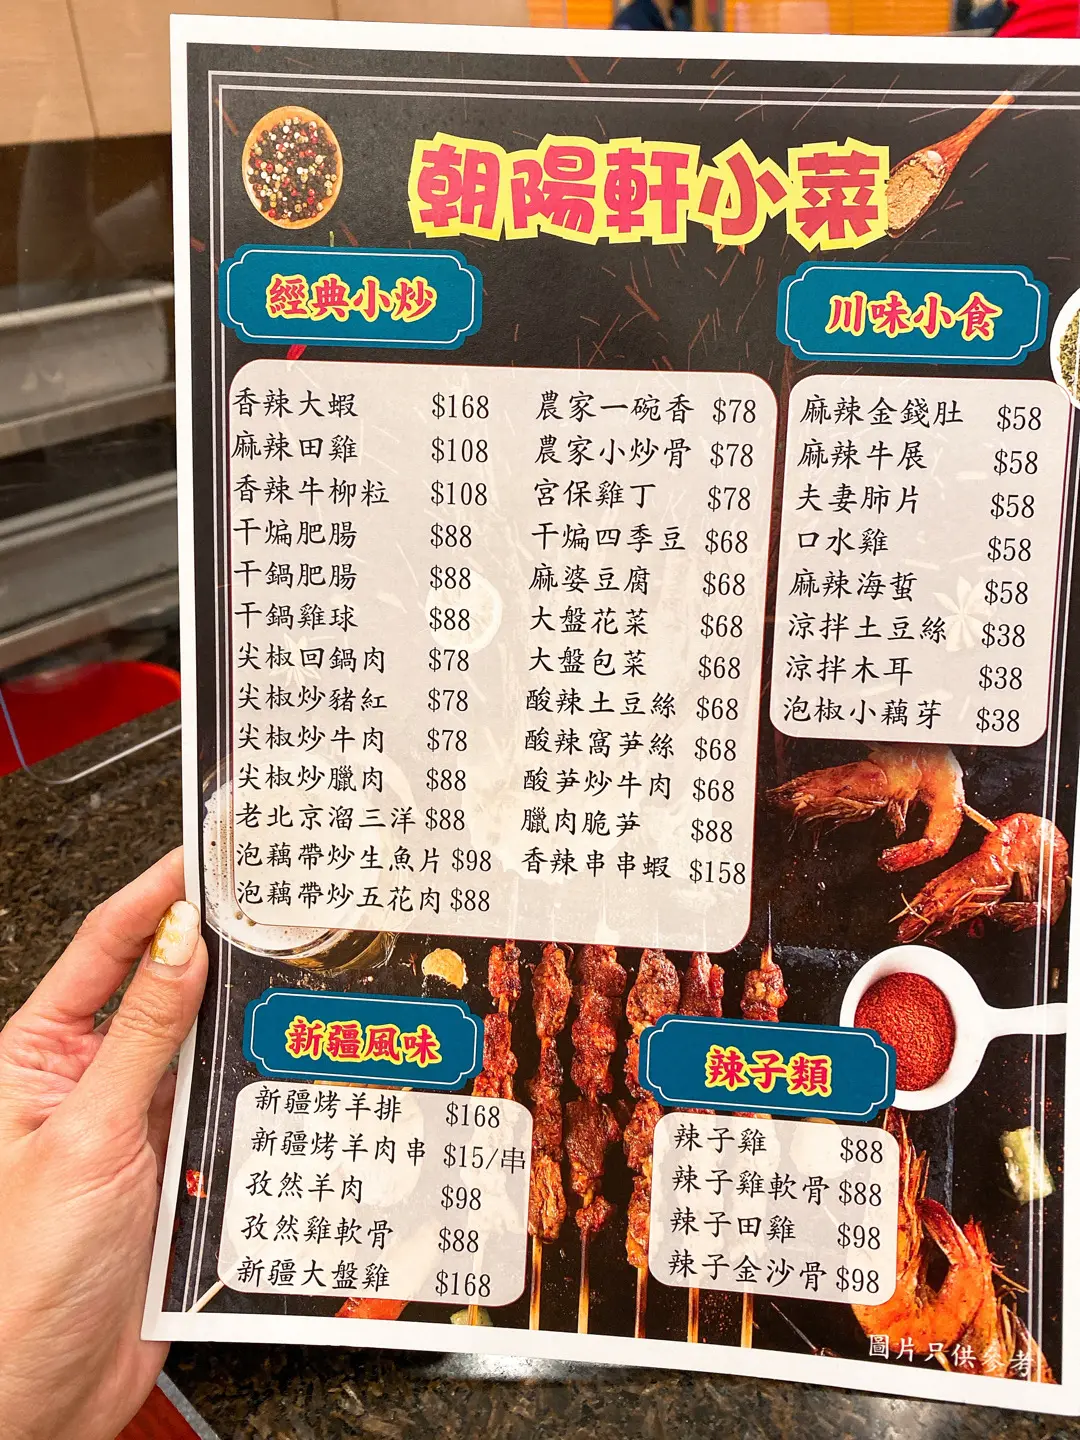 朝陽軒小菜
經典小炒
香辣大蝦 $168
麻辣田雞 $108
香辣牛柳粒 $108
干煸肥腸 $88
干鍋肥腸 $88
干鍋雞球 $88
尖椒回鍋肉 $78
尖椒炒豬紅 $78
尖椒炒牛肉 $78
尖椒炒臘肉 $88
老北京溜三洋 $88
泡藕帶炒生魚片 $98
泡藕帶炒五花肉 $88
農家一碗香 $78
農家小炒骨 $78
宮保雞丁 $78
干煸四季豆 $68
麻婆豆腐 $68
大盤花菜 $68
大盤包菜 $68
酸辣土豆絲 $68
酸辣窩笋絲 $68
酸笋炒牛肉 $68
臘肉脆笋 $88
香辣串串蝦 $158
川味小食
麻辣金錢肚 $58
麻辣牛展 $58
夫妻肺片 $58
口水雞 $58
麻辣海蜇 $58
涼拌土豆絲 $38
涼拌木耳 $38
泡椒小藕芽 $38
新疆風味
新疆烤羊排 $168
新疆烤羊肉串 $15/串
孜然羊肉 $98
孜然雞軟骨 $88
新疆大盤雞 $168
辣子類
辣子雞 $88
辣子雞軟骨 $88
辣子田雞 $98
辣子金沙骨 $98
圖片只供參考